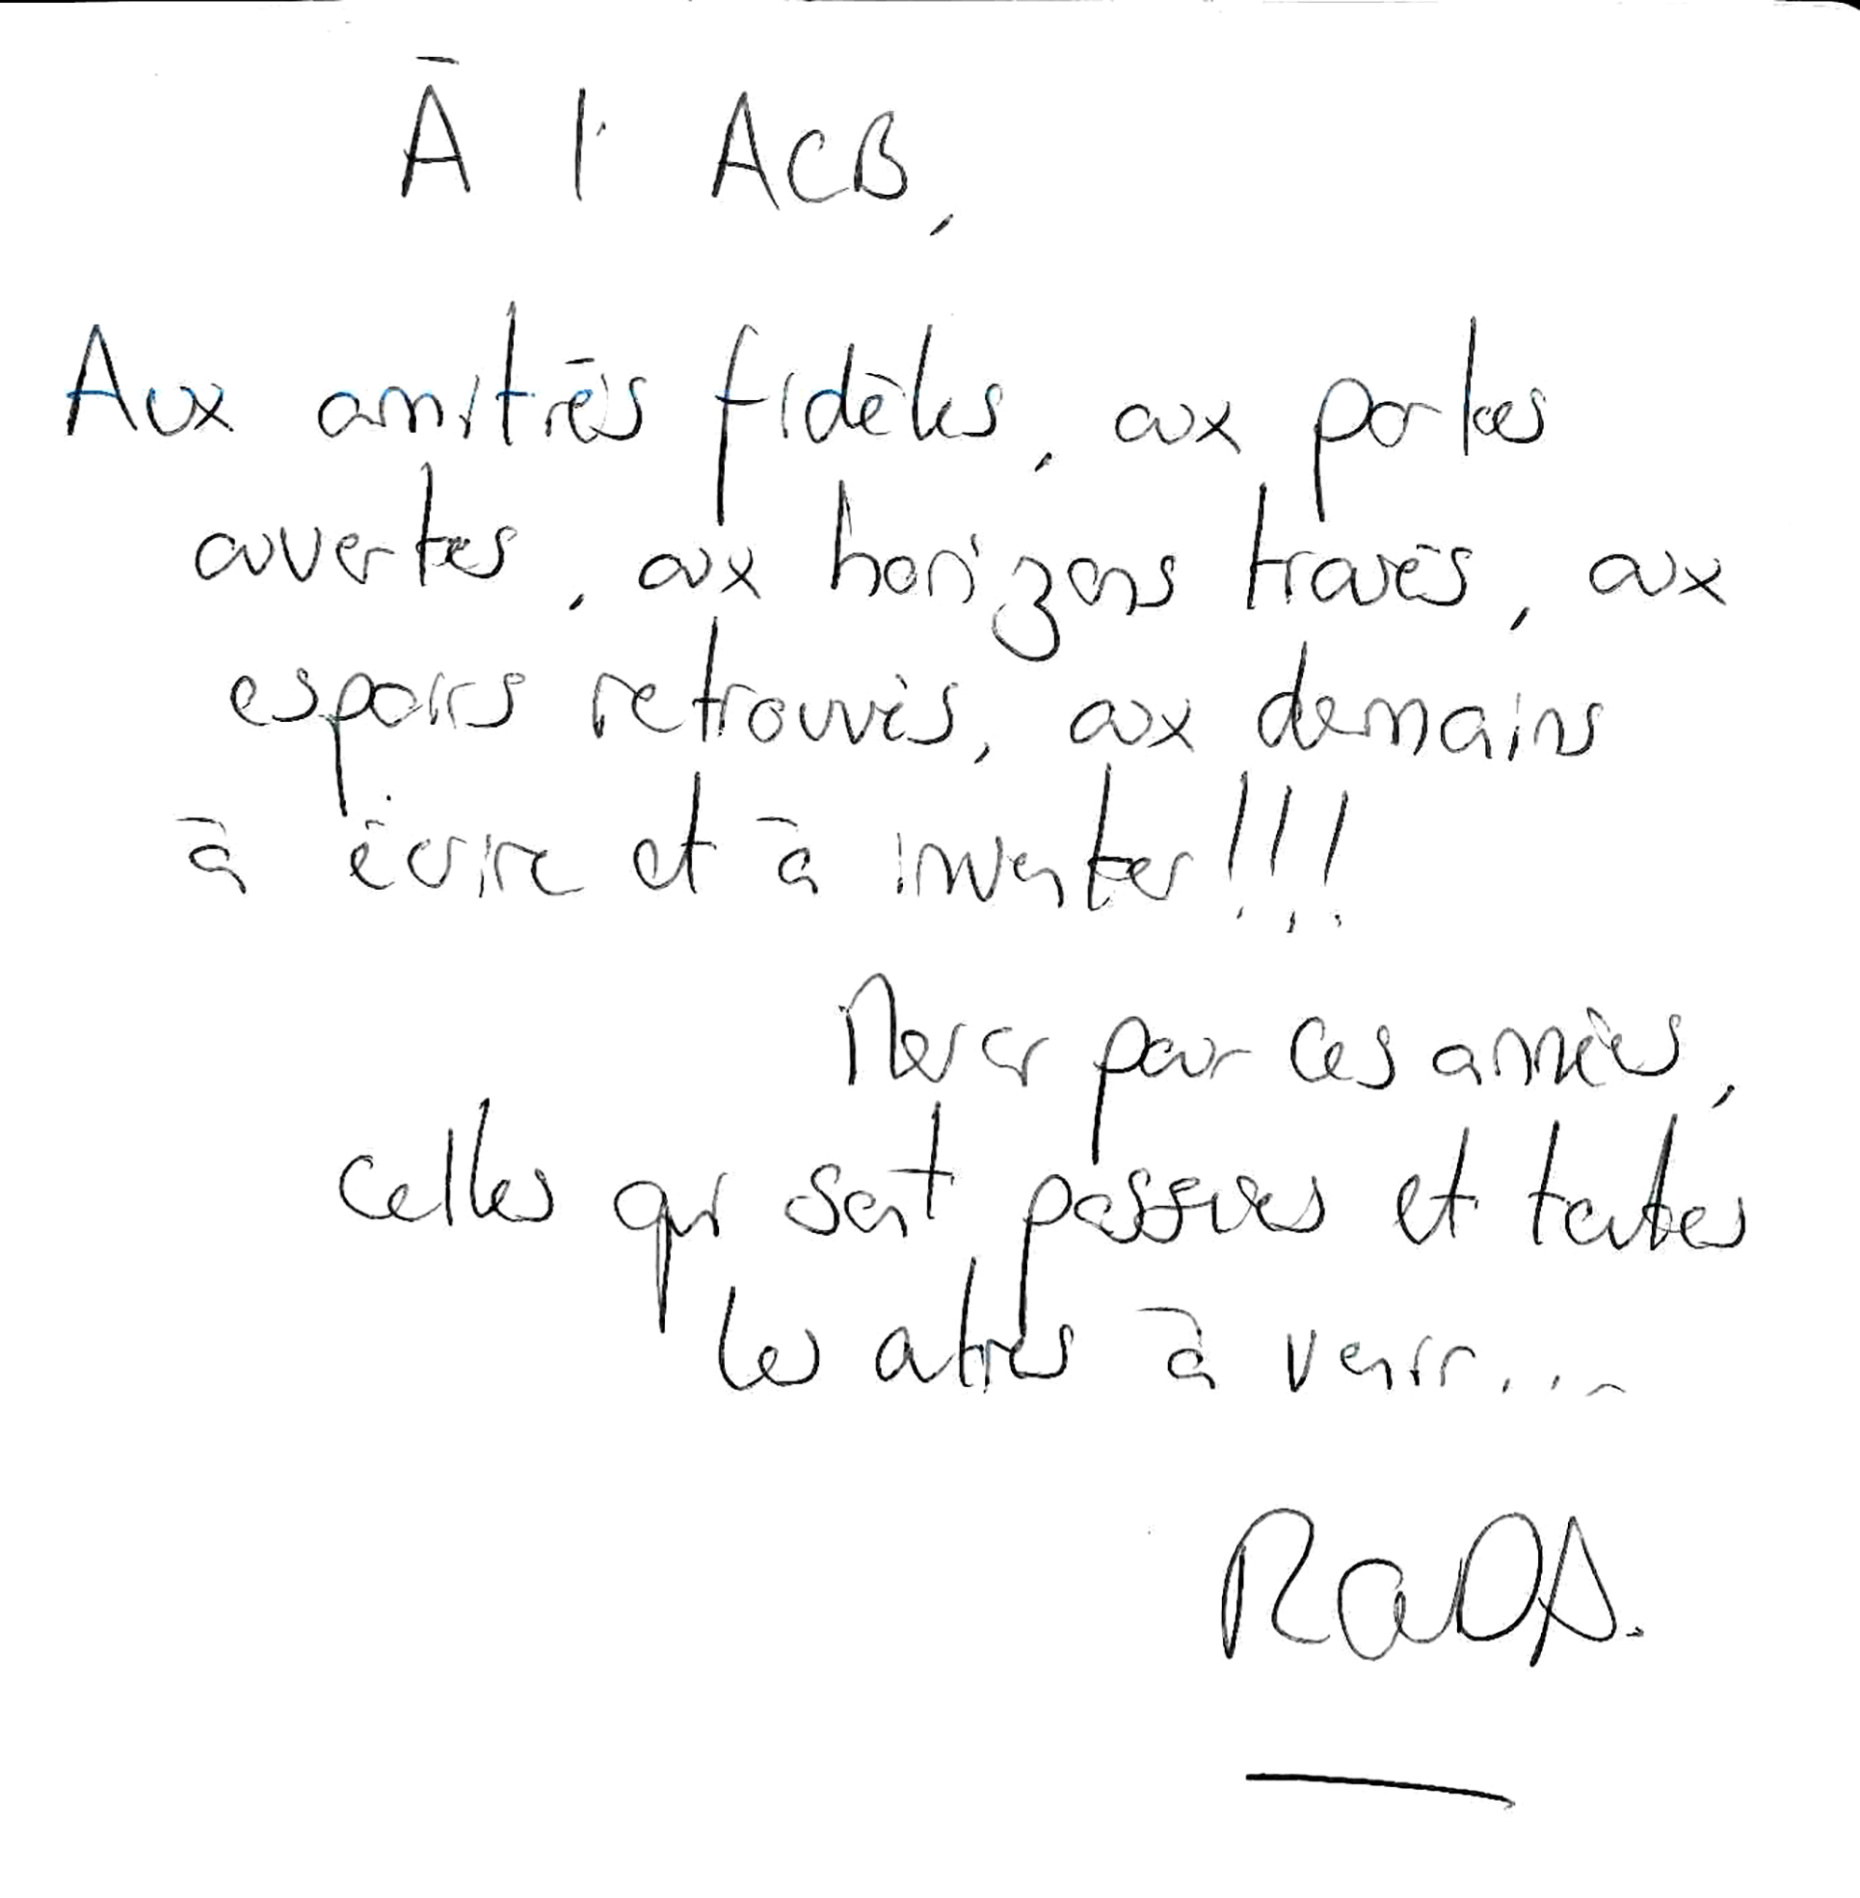 À l'ACB,
Aux amitiés fidèles, aux portes
ouvertes, aux horizons tracés, aux
espoirs retrouvés, aux demains
à écrire et à inventer!!!
Merci pour ces années,
celles qui sont passées et toutes
les autres à venir...
RaDA.